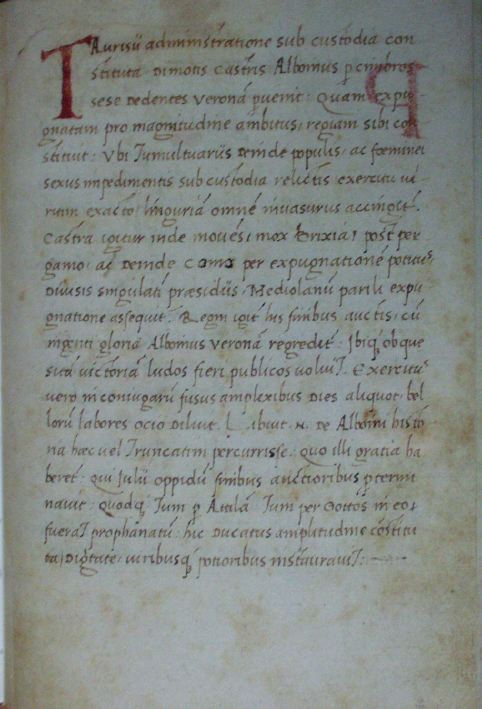 TAurisii administratione sub custodia con
stituta. Dimotis castris Alboinus p cmoros
sese dedentes Veronā puenit. Quam expu
gnatam pro magnitudine ambitus, regiam sibi con
stituit. Ubi Tumultuariis deinde populis, ac fœminei
sexus impedimentis sub custodia relictis exercitu vi
ritim exacto, linguriā omnē invasurus accingit.
Castra igitur inde movēs, mox Brixia, post per
gamo, ac deinde Como per expugnationē potitus
Divisis singulati præsidiis, Mediolanū parili expu
gnatione assequit. Regni igit his finibus auctis, cū
ingenti gloria Alboinus veronā regredit. Ibiq ob que
sitā victoriā ludos fieri publicos voluit. Exercitus
vero in coniugarū fusus amplexibus dies aliquot, bel
lorū labores ocio diluit. Libuit .n. de Alboini histo
ria hæc vel Truncatim percurrisse, quo illi gratia ha
beret. qui Julii oppidū finibus auctioribus p termi
navit. quodq Tum p Attilā Tum per Gottos in eo
fuerat prophanatū, hic Ducatus amplitudine cōstitu
ta, Dignitate, viribusq potioribus instauravit.